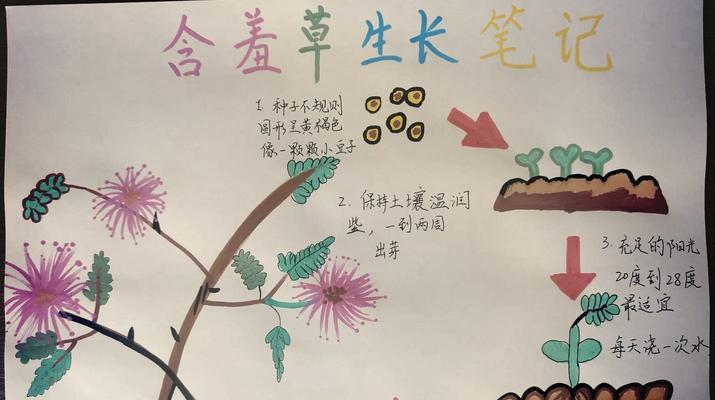 含羞草生长笔记
1. 种子不规则
圆形呈黄褐色
像一颗颗小豆子
2. 保持土壤温润
些，一到两周
出芽
3. 充足的阳光
20度到28度
最适宜
每天浇一次水